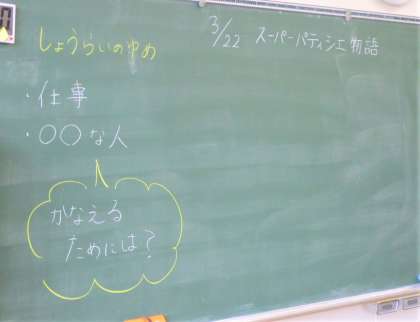 しょうらいのゆめ
3/22 スーパーパティシエ物語
・仕事
・○○な人
かなえる
ためには?